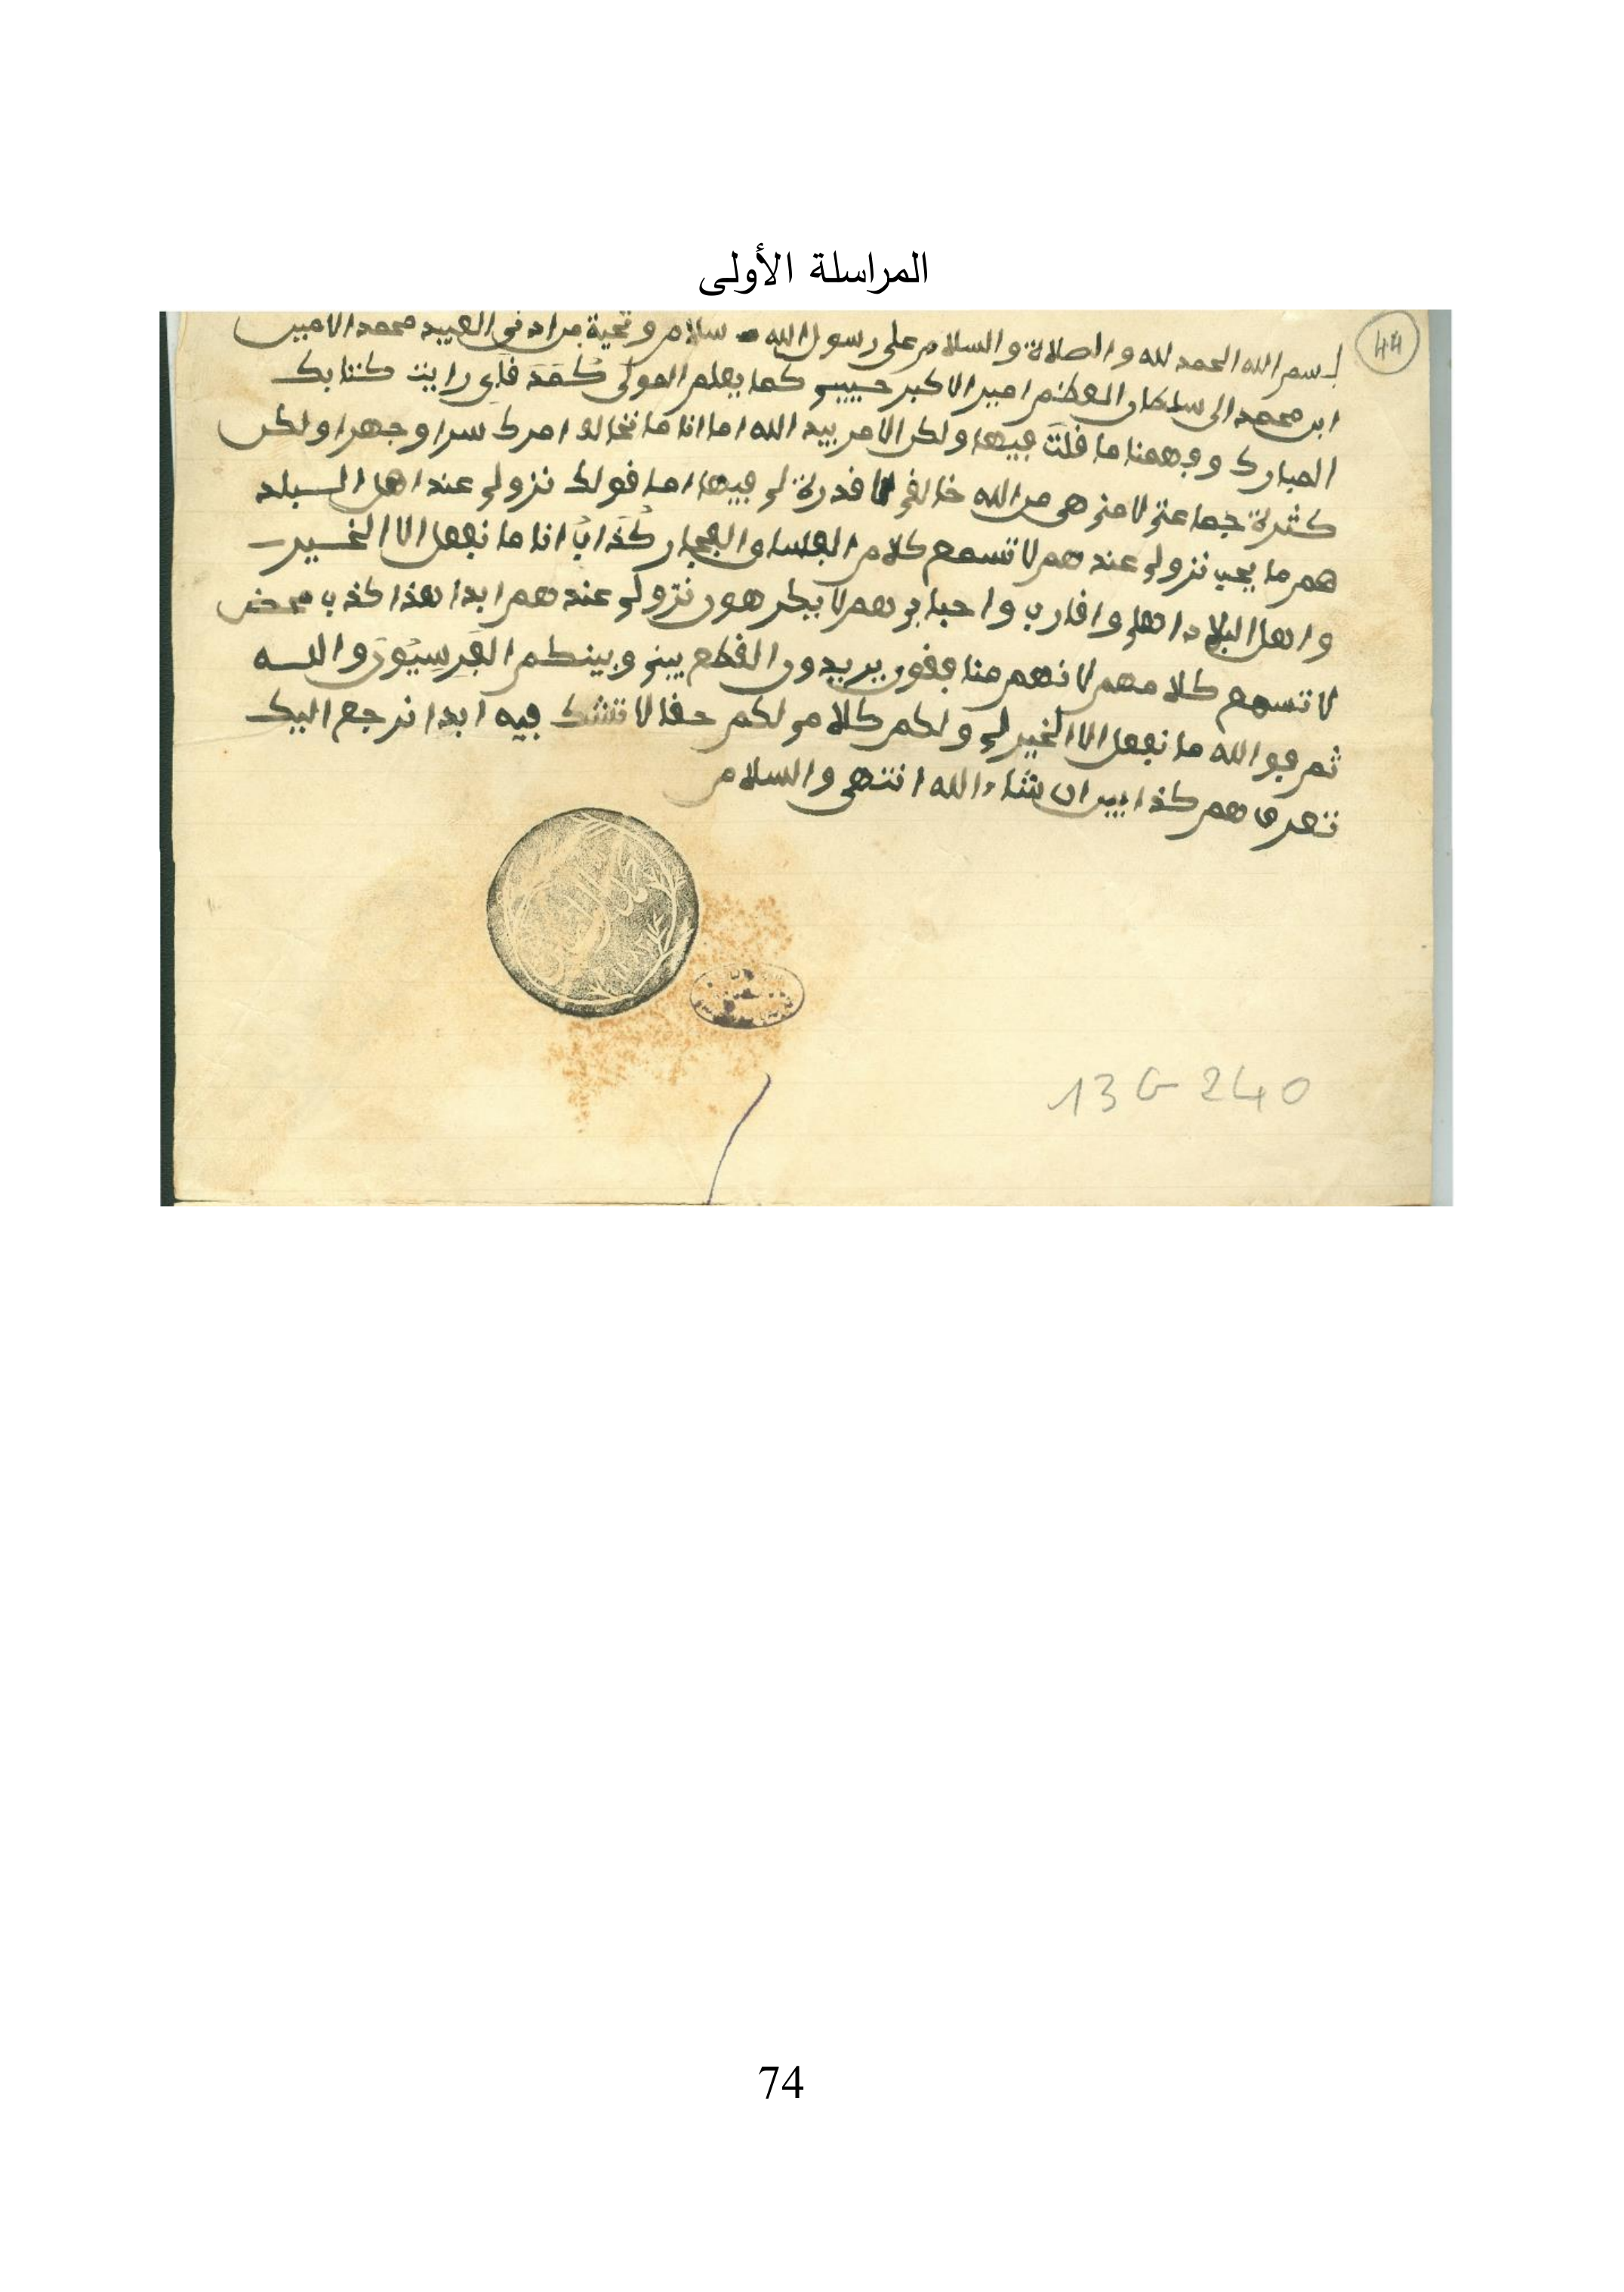 المراسلة الأولى
44
بسم الله الحمد لله والصلاة والسلام على رسول الله سلام وتحية من ادنى العبيد محمد الامين
ابن محمد الى سلطان المعظم امير الاكبر حبيبي كما يعلم المولى كُمَدَ فَلِي رايت كتابك
المبارك وفهمنا ما قلتَ فيها ولكن الامر بيد الله اما انا ما نخالف امرك سرا وجهرا ولكن
كثرة جماعتي لا مني هي من الله خالفي لا قدرة لي فيها اما قولك نزولي عند اهل البلد
هم ما يحب نزولي عندهم لا تسمع كلام الفلساء والفجار كُذَابٌ انا ما نفعل الا الخير
واهل البلاد اهلي واقارب واحبابي هم لا يكرهون نزولي عندهم ابدا هذا كذب محض
لا تسمع كلامهم لانهم منافقون يريدون القطع بيني وبينكم الفَرِسِيُّونَ والله
ثم فوالله ما نفعل الا الخير لي ولكم كلامي لكم حقا لا تشك فيه ابدا نرجع اليك
تعرف هم كذابين ان شاء الله انتهى والسلام
13 G 240
74